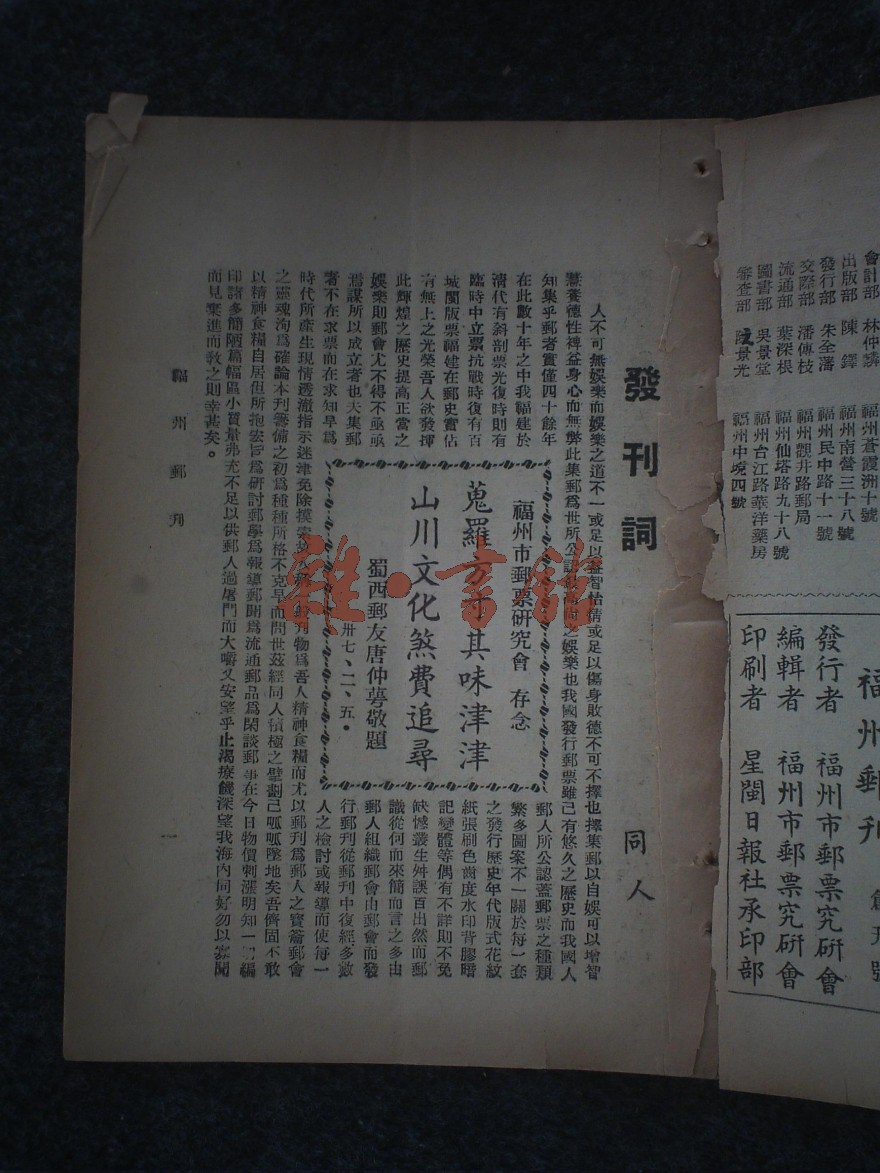 會計部 林仲鏻 福州蒼霞洲十號
出版部 陳鐸 福州南營三十八號
發行部 朱全藩 福州民中路十一號
交際部 潘傳枝 福州觀井路郵局
流通部 葉深根 福州仙塔路九十八號
圖書部 吳景堂 福州台江路華洋藥房
審查部 景光 福州中境四號
福州郵刊 創刊號
發行者 福州市郵票究研會
編輯者 福州市郵票究研會
印刷者 星閩日報社承印部
發刊詞
同人
人不可無娛樂而娛樂之道不一或足以益智怡情或足以傷身敗德不可不擇也擇集郵以自娛可以增智
養德性裨益身心而無弊此集郵為世所公認 之娛樂也我國發行郵票雖已有悠久之歷史而我國人
知集乎郵者實僅四十餘年
在此數十年之中我福建於
清代有斜剖票光復時則有
臨時中立票抗戰時復有百
城閩版票福建在郵史實佔
有無上之光榮吾人欲發揮
此輝煌之歷史提高正當之
娛樂則郵會尤不得不亟亟
焉謀所以成立者也夫集郵
者不在求票而在求知早為
福州市郵票研究會 存念
蒐羅方寸其味津津
山川文化煞費追尋
蜀西郵友唐仲萼敬題
卅七、二、五。
郵人所公認蓋郵票之種類
繁多圖案不一關於每一套
之發行歷史年代版式花紋
紙張刷色齒度水印背膠暗
記變體等偶有不詳則不免
缺憾叢生舛誤百出然而郵
識從何而來簡而言之多由
郵人組織郵會由郵會而發
行郵刊從郵刊中復經多數
人之檢討或報導而使每一
時代所產生現情透澈指示迷津免除摸索 刊物為吾人精神食糧而尤以郵刊為郵人之寶籥郵會
之靈魂洵為確論本刊籌備之初為種種所格不克早而問世茲經同人積極之擘劃已呱呱墜地矣吾儕固不敢
以精神食糧自居但所抱宏旨為研討郵學為報導郵聞為流通郵品為閑談郵事在今日物價刺漲明知一切編
印諸多簡陋篇幅區小質量弗充不足以供郵人過屠門而大嚼又安望乎止渴療饑深望我海內同好勿以寡聞
而見棄進而敎之則幸甚矣。
福州郵刊
一
雜·書館